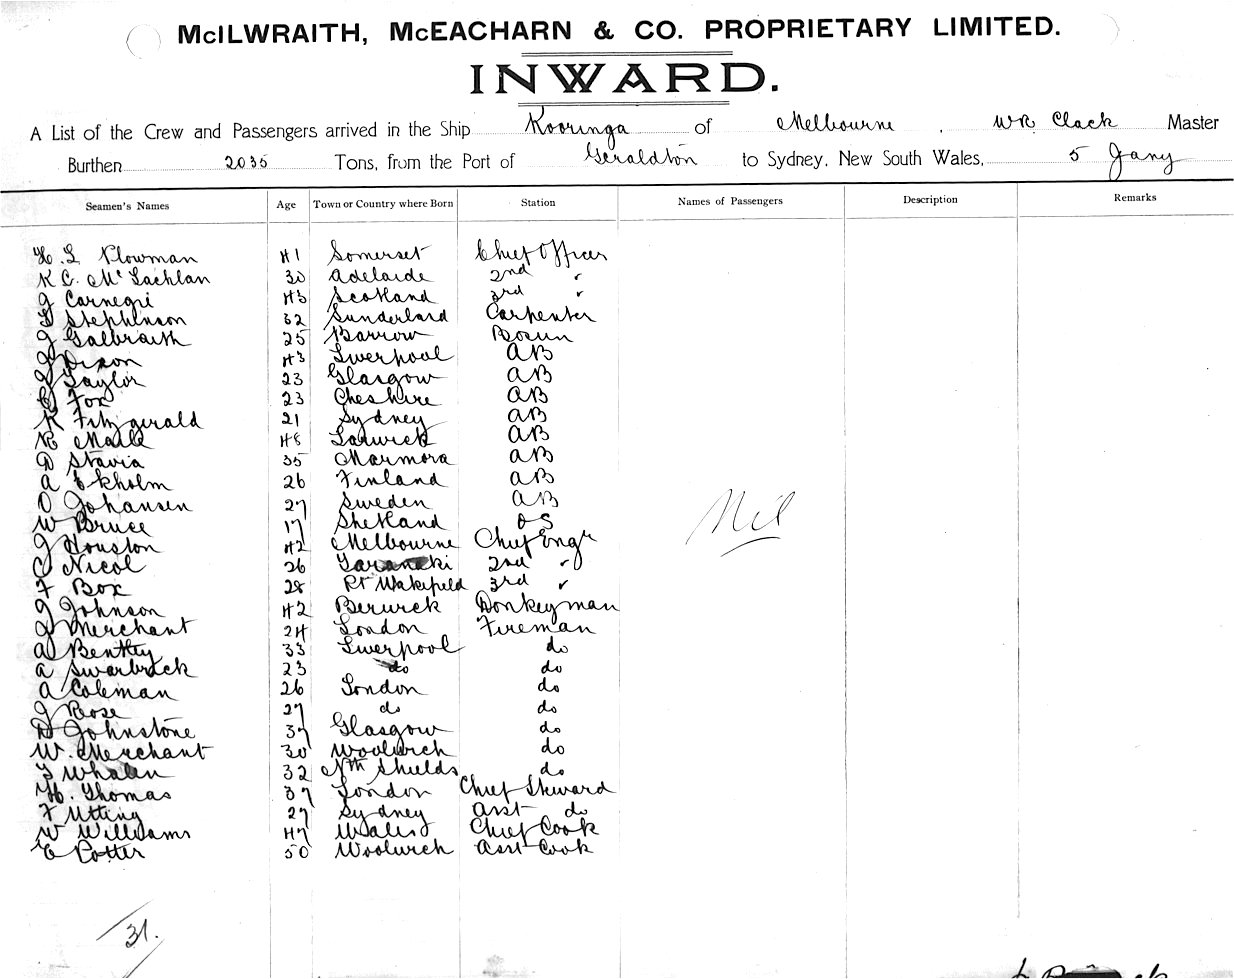 McILWRAITH, McEACHARN & CO. PROPRIETARY LIMITED.
INWARD.
A List of the Crew and Passengers arrived in the Ship Kooringa of Melbourne, WR. Clack Master
Burthen 2035 Tons, from the Port of Geraldton to Sydney, New South Wales, 5 Jany
Seamen's Names Age Town or Country where Born Station Names of Passengers Description Remarks
H. L Plowman 41 Somerset Chief Officer
K C. McLachlan 30 Adelaide 2nd "
J Carnegi 43 Scotland 3rd "
Stephinson 32 Sunderland Carpenter
J Galbraith 25 Barrow Bosun
J Dixon 43 Liverpool AB
J Taylor 23 Glasgow AB
C Fox 23 Cheshire AB
K Fitzgerald 21 Sydney AB
R 48 AB
D Stavia 35 Marmora AB
A Ekholm 26 Finland AB
O Johansen 27 Sweden AB
W Bruce 17 Shetland OS
Nil
J Houston 42 Melbourne Chief Engr
C Nicol 26 Taranaki 2nd "
F Box 28 Pt Wakefield 3rd "
J Johnson 42 Berwick Donkeyman
J Merchant 24 London Fireman
A Bentley 33 Liverpool do
A Swarbrick 23 do do
A Coleman 26 London do
J Rose 27 do do
D Johnstone 37 Glasgow do
W. Merchant 30 Woolwich do
T Whalen 32 Nth Shields do
H. Thomas 37 London Chief Steward
F Utting 27 Sydney Asst do
W Williams 47 Wales Chief Cook
E Potter 50 Woolwich Asst Cook
31.